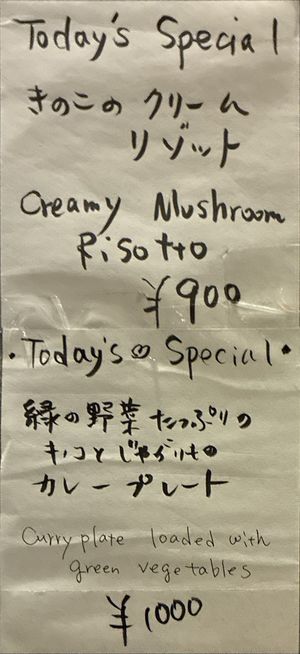 Today's Special
きのこの クリーム
リゾット
Creamy Mushroom
Risotto
¥900
・Today's♡ Special・
緑の野菜たっぷりの
キノコとじゃがいもの
カレープレート
Curry plate loaded with
green vegetables
¥1000